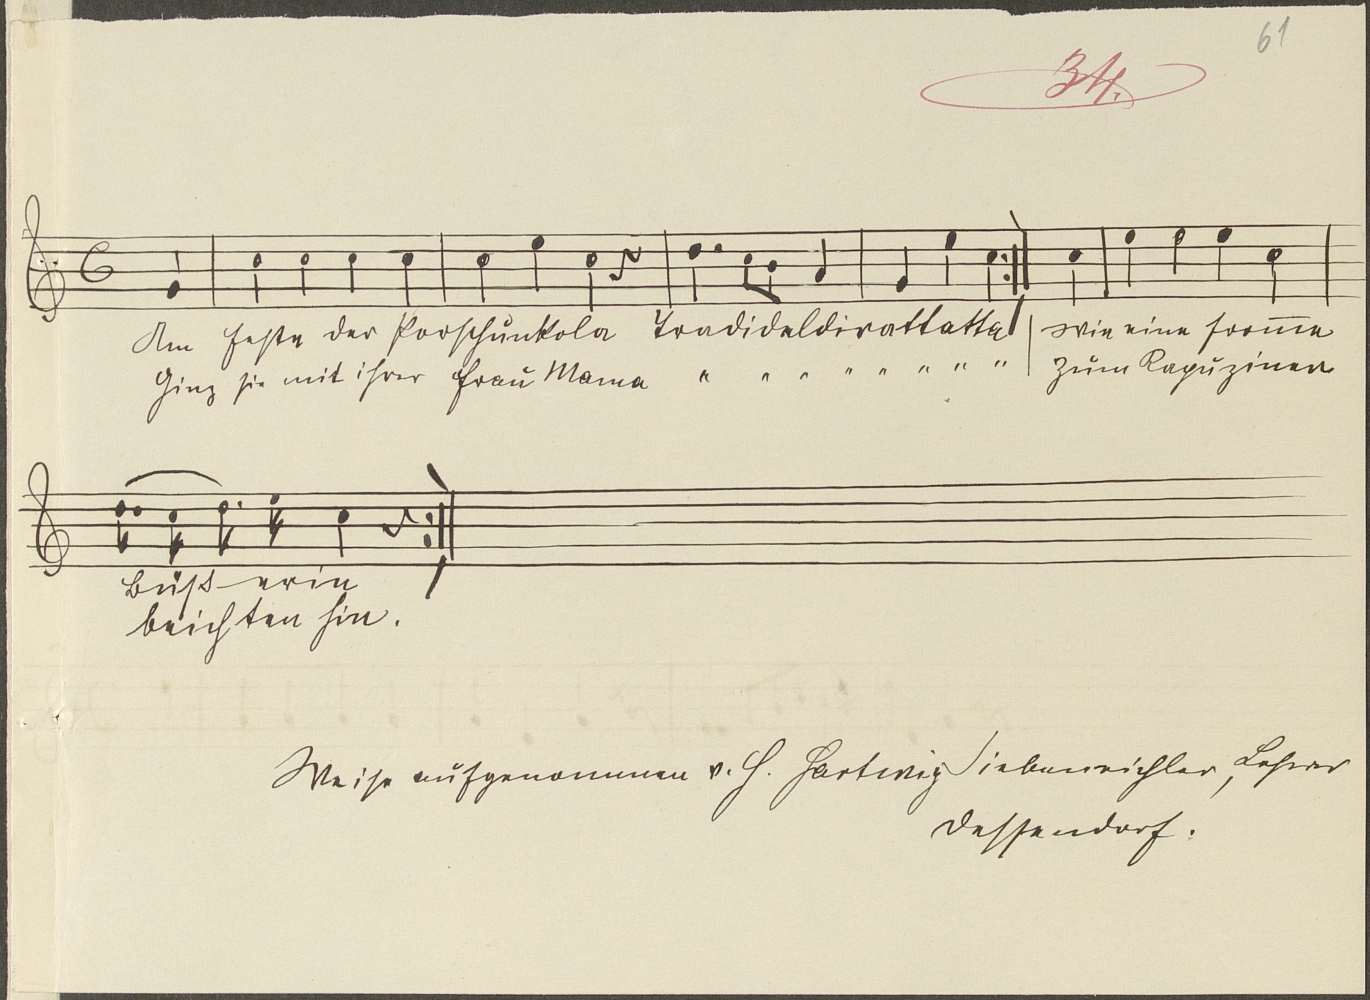 61
34.
Am Feste der Porschunkola Tradideldirattatta wie eine from̅e
Ging sie mit ihrer Frau Mama " " " " " " " " zum Kapuziner
Büß-erin
beichten hin.
Weise aufgenommen v. H. Hartwig Siebeneichler, Lehrer
Dessendorf.